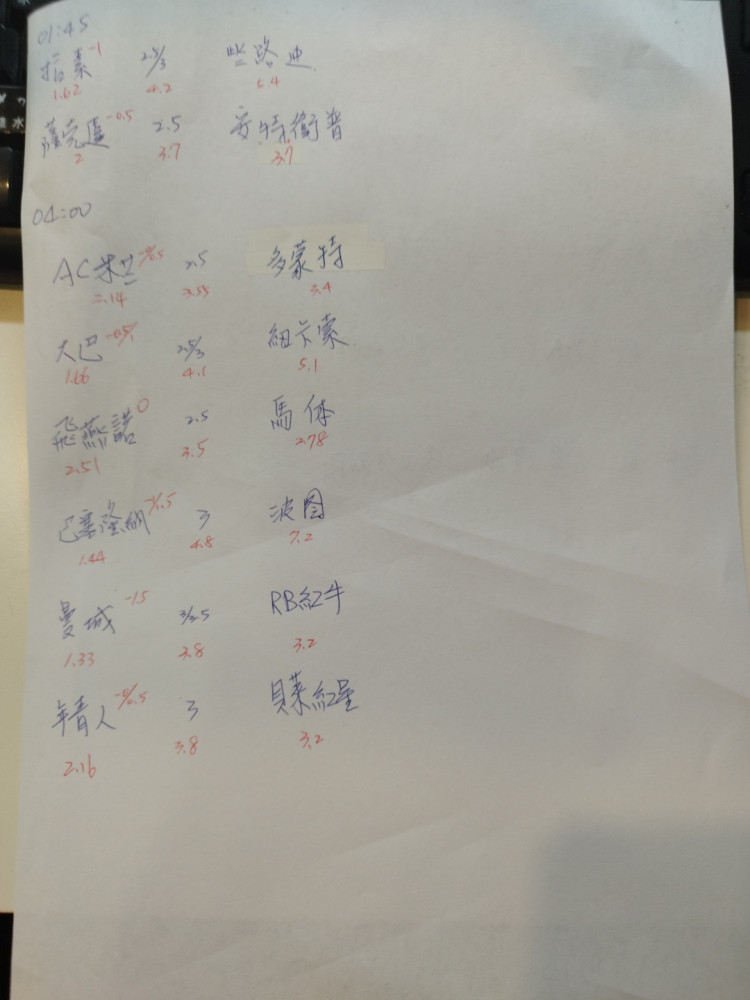 01:45
拉素 -1 2.5/3 些路迪
1.62 4.2 5.4
薩克達 -0.5 2.5 安特衛普
2 3.7 3.7
04:00
AC米兰 -0/0.5 2.5 多蒙特
2.14 3.55 3.4
大巴 -0.5/1 2.5/3 紐卡索
1.66 4.1 5.1
飛燕諾 0 2.5 馬体
2.51 3.5 2.78
巴塞隆納 -1/1.5 3 波圖
1.44 4.8 7.2
曼城 -1.5 3/3.5 RB紅牛
1.33 3.8 3.2
年青人 -0/0.5 3 貝萊紅星
2.16 3.8 3.2